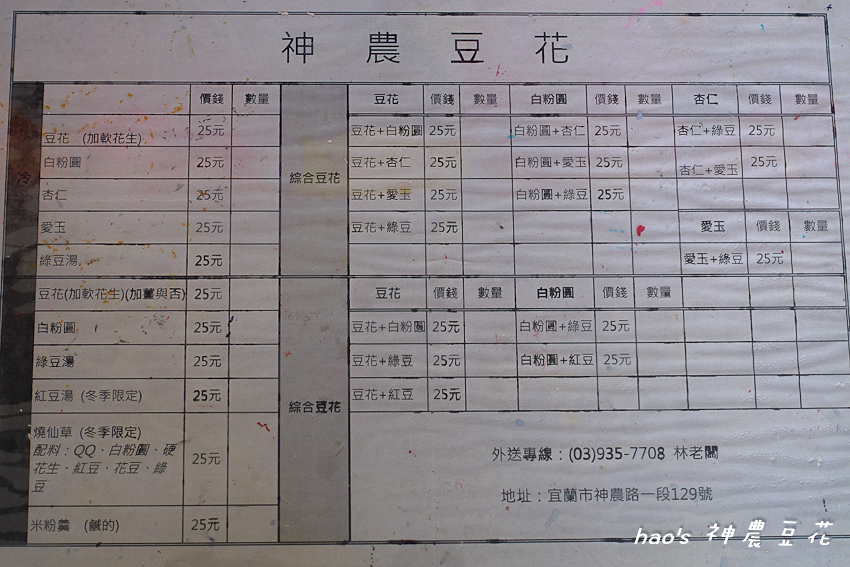 神農豆花
價錢 數量 豆花 價錢 數量 白粉圓 價錢 數量 杏仁 價錢 數量
冷
豆花 (加軟花生) 25元
白粉圓 25元
杏仁 25元
愛玉 25元
綠豆湯 25元
綜合豆花
豆花+白粉圓 25元 白粉圓+杏仁 25元 杏仁+綠豆 25元
豆花+杏仁 25元 白粉圓+愛玉 25元 杏仁+愛玉 25元
豆花+愛玉 25元 白粉圓+綠豆 25元
豆花+綠豆 25元 愛玉 價錢 數量
愛玉+綠豆 25元
豆花(加軟花生)(加薑與否) 25元
白粉圓 25元
綠豆湯 25元
紅豆湯 (冬季限定) 25元
燒仙草 (冬季限定) 25元
配料：QQ、白粉圓、硬
花生、紅豆、花豆、綠
豆
米粉羹 (鹹的) 25元
綜合豆花
豆花 價錢 數量 白粉圓 價錢 數量
豆花+白粉圓 25元 白粉圓+綠豆 25元
豆花+綠豆 25元 白粉圓+紅豆 25元
豆花+紅豆 25元
外送專線：(03)935-7708 林老闆
地址：宜蘭市神農路一段129號
hao's 神農豆花